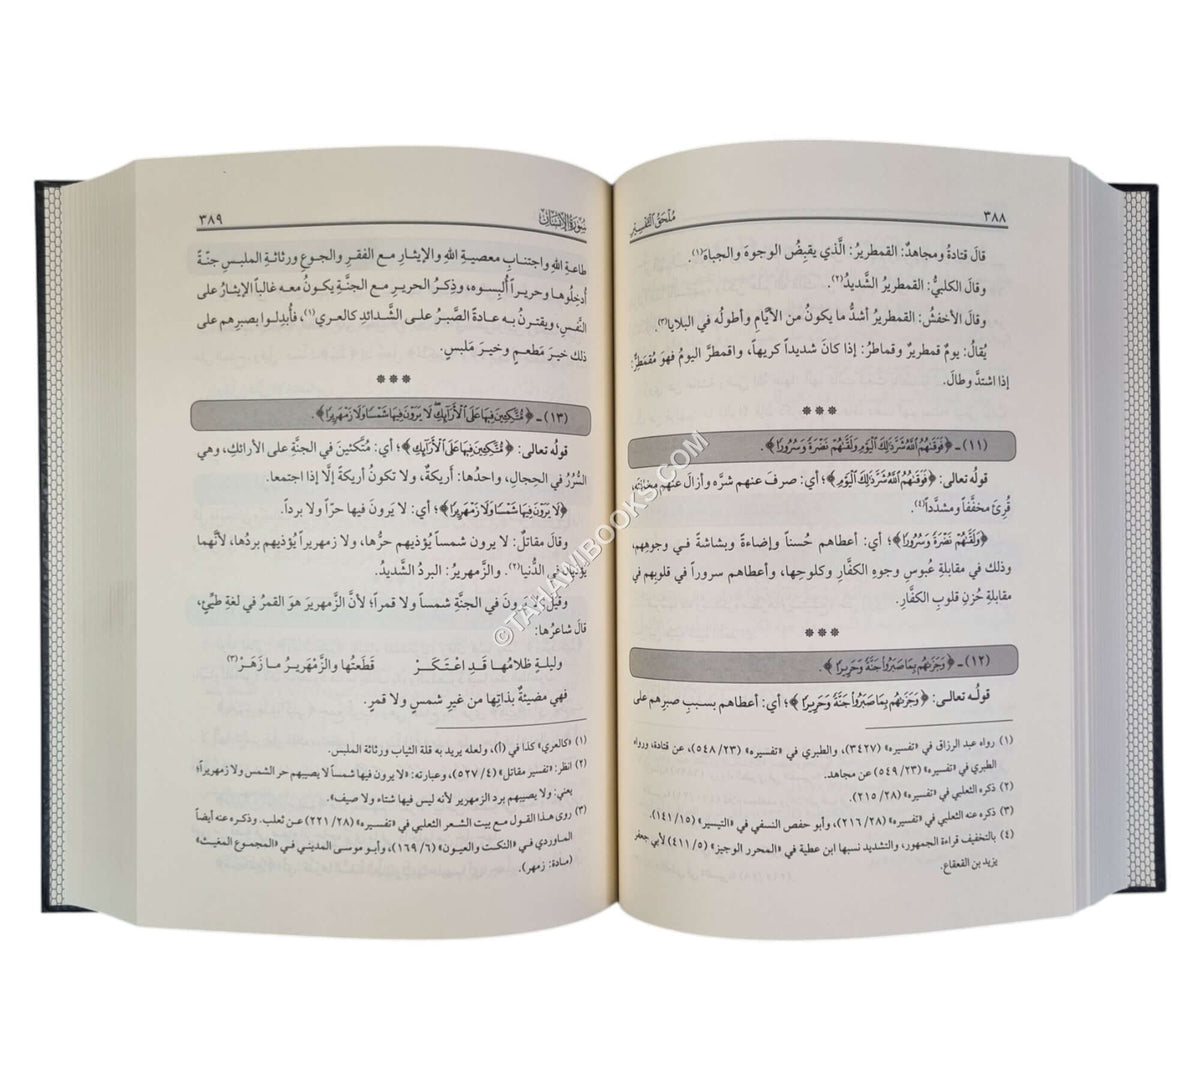 ٣٨٨
مُلْحَقُ التَّفْسِيرِ
قالَ قتادةُ ومجاهدٌ: القمطريرُ: الَّذي يقبِضُ الوجوهَ والجباهَ(١).
وقالَ الكلبيُّ: القمطريرُ الشَّديدُ(٢).
وقالَ الأخفشُ: القمطريرُ أشدُّ ما يكونُ من الأيَّامِ وأطولُه في البلايا(٣).
يُقالُ: يومٌ قمطريرٌ وقماطرُ: إذا كانَ شديداً كريهاً، واقمطرَّ اليومُ فهوَ مُقمَطِرٌّ:
إذا اشتدَّ وطالَ.
***
(١١) ـ ﴿فَوَقَىٰهُمُ ٱللَّهُ شَرَّ ذَٰلِكَ ٱلْيَوْمِ وَلَقَّىٰهُمْ نَضْرَةً وَسُرُورًا﴾.
قولُه تعالى: ﴿فَوَقَىٰهُمُ ٱللَّهُ شَرَّ ذَٰلِكَ ٱلْيَوْمِ﴾؛ أي: صرفَ عنهم شرَّه وأزالَ عنهم محنتَه،
قُرِئَ مخفَّفاً ومشدَّداً(٤).
﴿وَلَقَّىٰهُمْ نَضْرَةً وَسُرُورًا﴾؛ أي: أعطاهم حُسناً وإضاءةً وبشاشةً في وجوهِهم،
وذلك في مقابلةِ عُبوسِ وجوهِ الكفَّارِ وكلوحِها، وأعطاهم سروراً في قلوبِهم في
مقابلةِ حُزنِ قلوبِ الكفَّارِ.
***
(١٢) ـ ﴿وَجَزَىٰهُم بِمَا صَبَرُوا۟ جَنَّةً وَحَرِيرًا﴾.
قولُه تعالى: ﴿وَجَزَىٰهُم بِمَا صَبَرُوا۟ جَنَّةً وَحَرِيرًا﴾؛ أي: أعطاهم بسببِ صبرِهم على
(١) رواه عبد الرزاق في «تفسيره» (٣٤٢٧)، والطبري في «تفسيره» (٢٣/ ٥٤٨)، عن قتادة، ورواه
الطبري في «تفسيره» (٢٣/ ٥٤٩) عن مجاهد.
(٢) ذكره الثعلبي في «تفسيره» (٢٨/ ٢١٥).
(٣) ذكره عنه الثعلبي في «تفسيره» (٢٨/ ٢١٦)، وأبو حفص النسفي في «التيسير» (١٥/ ١٤١).
(٤) بالتخفيف قراءة الجمهور، والتشديد نسبها ابن عطية في «المحرر الوجيز» (٥/ ٤١١) لأبي جعفر
يزيد بن القعقاع.
سُورَةُ الإِنْسَانِ
٣٨٩
طاعةِ اللهِ واجتنابِ معصيةِ اللهِ والإيثارِ مع الفقرِ والجوعِ ورثاثةِ الملبسِ جنَّةً
أُدخِلُوها وحريراً أُلبِسوه، وذِكرُ الحريرِ مع الجنَّةِ يكونُ معه غالباً الإيثارُ على
النَّفسِ، ويقترنُ به عادةً الصَّبرُ على الشَّدائدِ كالعري(١)، فأُبدِلوا بصبرِهم على
ذلك خيرَ مَطعمٍ وخيرَ مَلبسٍ.
***
(١٣) ـ ﴿مُّتَّكِـِٔينَ فِيهَا عَلَى ٱلْأَرَآئِكِ ۖ لَا يَرَوْنَ فِيهَا شَمْسًا وَلَا زَمْهَرِيرًا﴾.
قولُه تعالى: ﴿مُّتَّكِـِٔينَ فِيهَا عَلَى ٱلْأَرَآئِكِ﴾؛ أي: مُتَّكئينَ في الجنَّةِ على الأرائكِ، وهي
السُّرُرُ في الحِجالِ، واحدُها: أريكةٌ، ولا تكونُ أريكةً إلَّا إذا اجتمعا.
﴿لَا يَرَوْنَ فِيهَا شَمْسًا وَلَا زَمْهَرِيرًا﴾؛ أي: لا يَرونَ فيها حرّاً ولا برداً.
وقالَ مقاتلٌ: لا يرون شمساً يُؤذيهم حرُّها، ولا زمهريراً يُؤذيهم بردُها، لأنَّهما
في الدُّنيا(٢). والزَّمهريرُ: البردُ الشَّديدُ.
وقيلَ: لا يرونَ في الجنَّةِ شمساً ولا قمراً؛ لأنَّ الزَّمهريرَ هوَ القمرُ في لغةِ طيِّئٍ،
قالَ شاعرُها:
وليلةٍ ظلامُها قَدِ اعْتَكَرْ قطَعتُها والزَّمْهَريرُ ما زَهَرْ(٣)
فهي مضيئةٌ بذاتِها من غيرِ شمسٍ ولا قمرٍ.
(١) «كالعري» كذا في (أ)، ولعله يريد به قلة الثياب ورثاثة الملبس.
(٢) انظر: «تفسير مقاتل» (٤/ ٥٢٧)، وعبارته: «لا يرون فيها شمساً لا يصيبهم حر الشمس ولا زمهريراً؛
يعني: ولا يصيبهم برد الزمهرير لأنه ليس فيها شتاء ولا صيف».
(٣) روى هذا القول مع بيت الشعر الثعلبي في «تفسيره» (٢٨/ ٢٢١) عن ثعلب. وذكره عنه أيضاً
الماوردي في «النكت والعيون» (٦/ ١٦٩)، وأبو موسى المديني في «المجموع المغيث»
(مادة: زمهر).
©TAHAWIBOOKS.COM